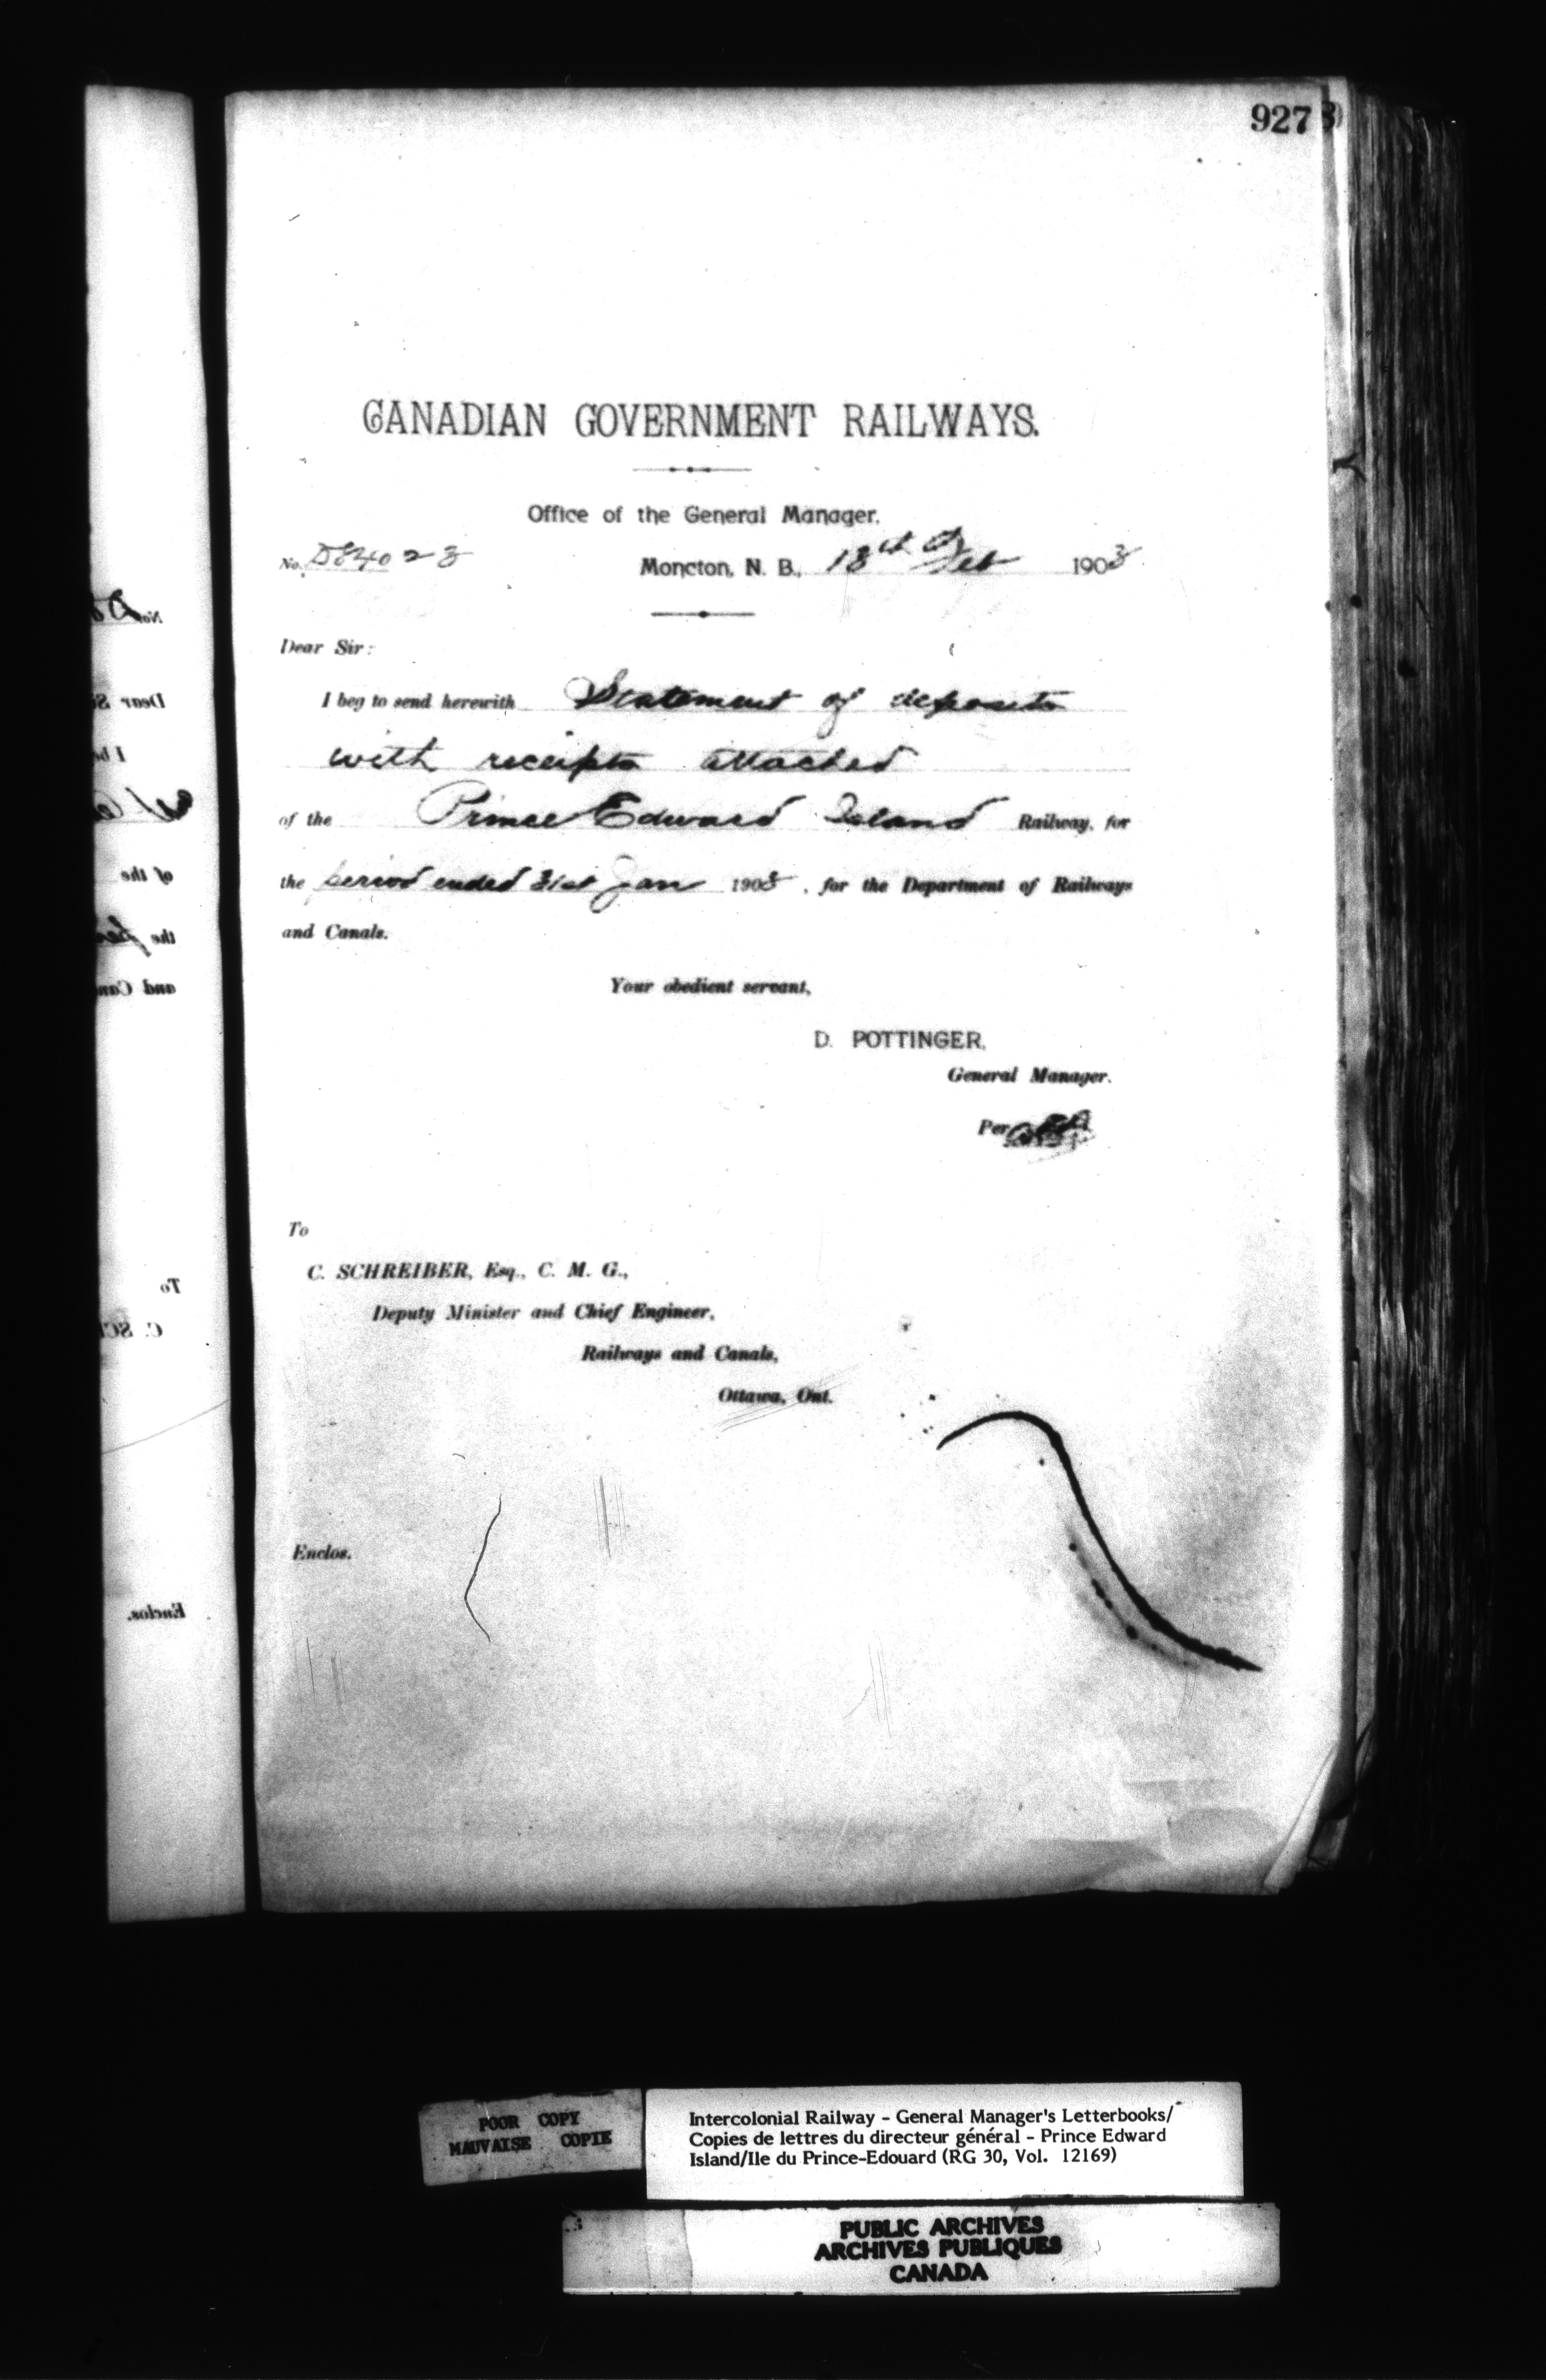 927
CANADIAN GOVERNMENT RAILWAYS.
Office of the General Manager.
No. Moncton, N. B., Feb 1903
Dear Sir:
I beg to send herewith Statement of deposits
with receipts attached
of the Prince Edward Island Railway, for
the period ended 31st Jan 1903, for the Department of Railways
and Canals.
Your obedient servant,
D. POTTINGER,
General Manager.
Per
To
C. SCHREIBER, Esq., C. M. G.,
Deputy Minister and Chief Engineer,
Railways and Canals,
Ottawa, Ont.
Enclos.
POOR COPY
MAUVAISE COPIE
Intercolonial Railway - General Manager's Letterbooks/
Copies de lettres du directeur général - Prince Edward
Island/Ile du Prince-Edouard (RG 30, Vol. 12169)
PUBLIC ARCHIVES
ARCHIVES PUBLIQUES
CANADA